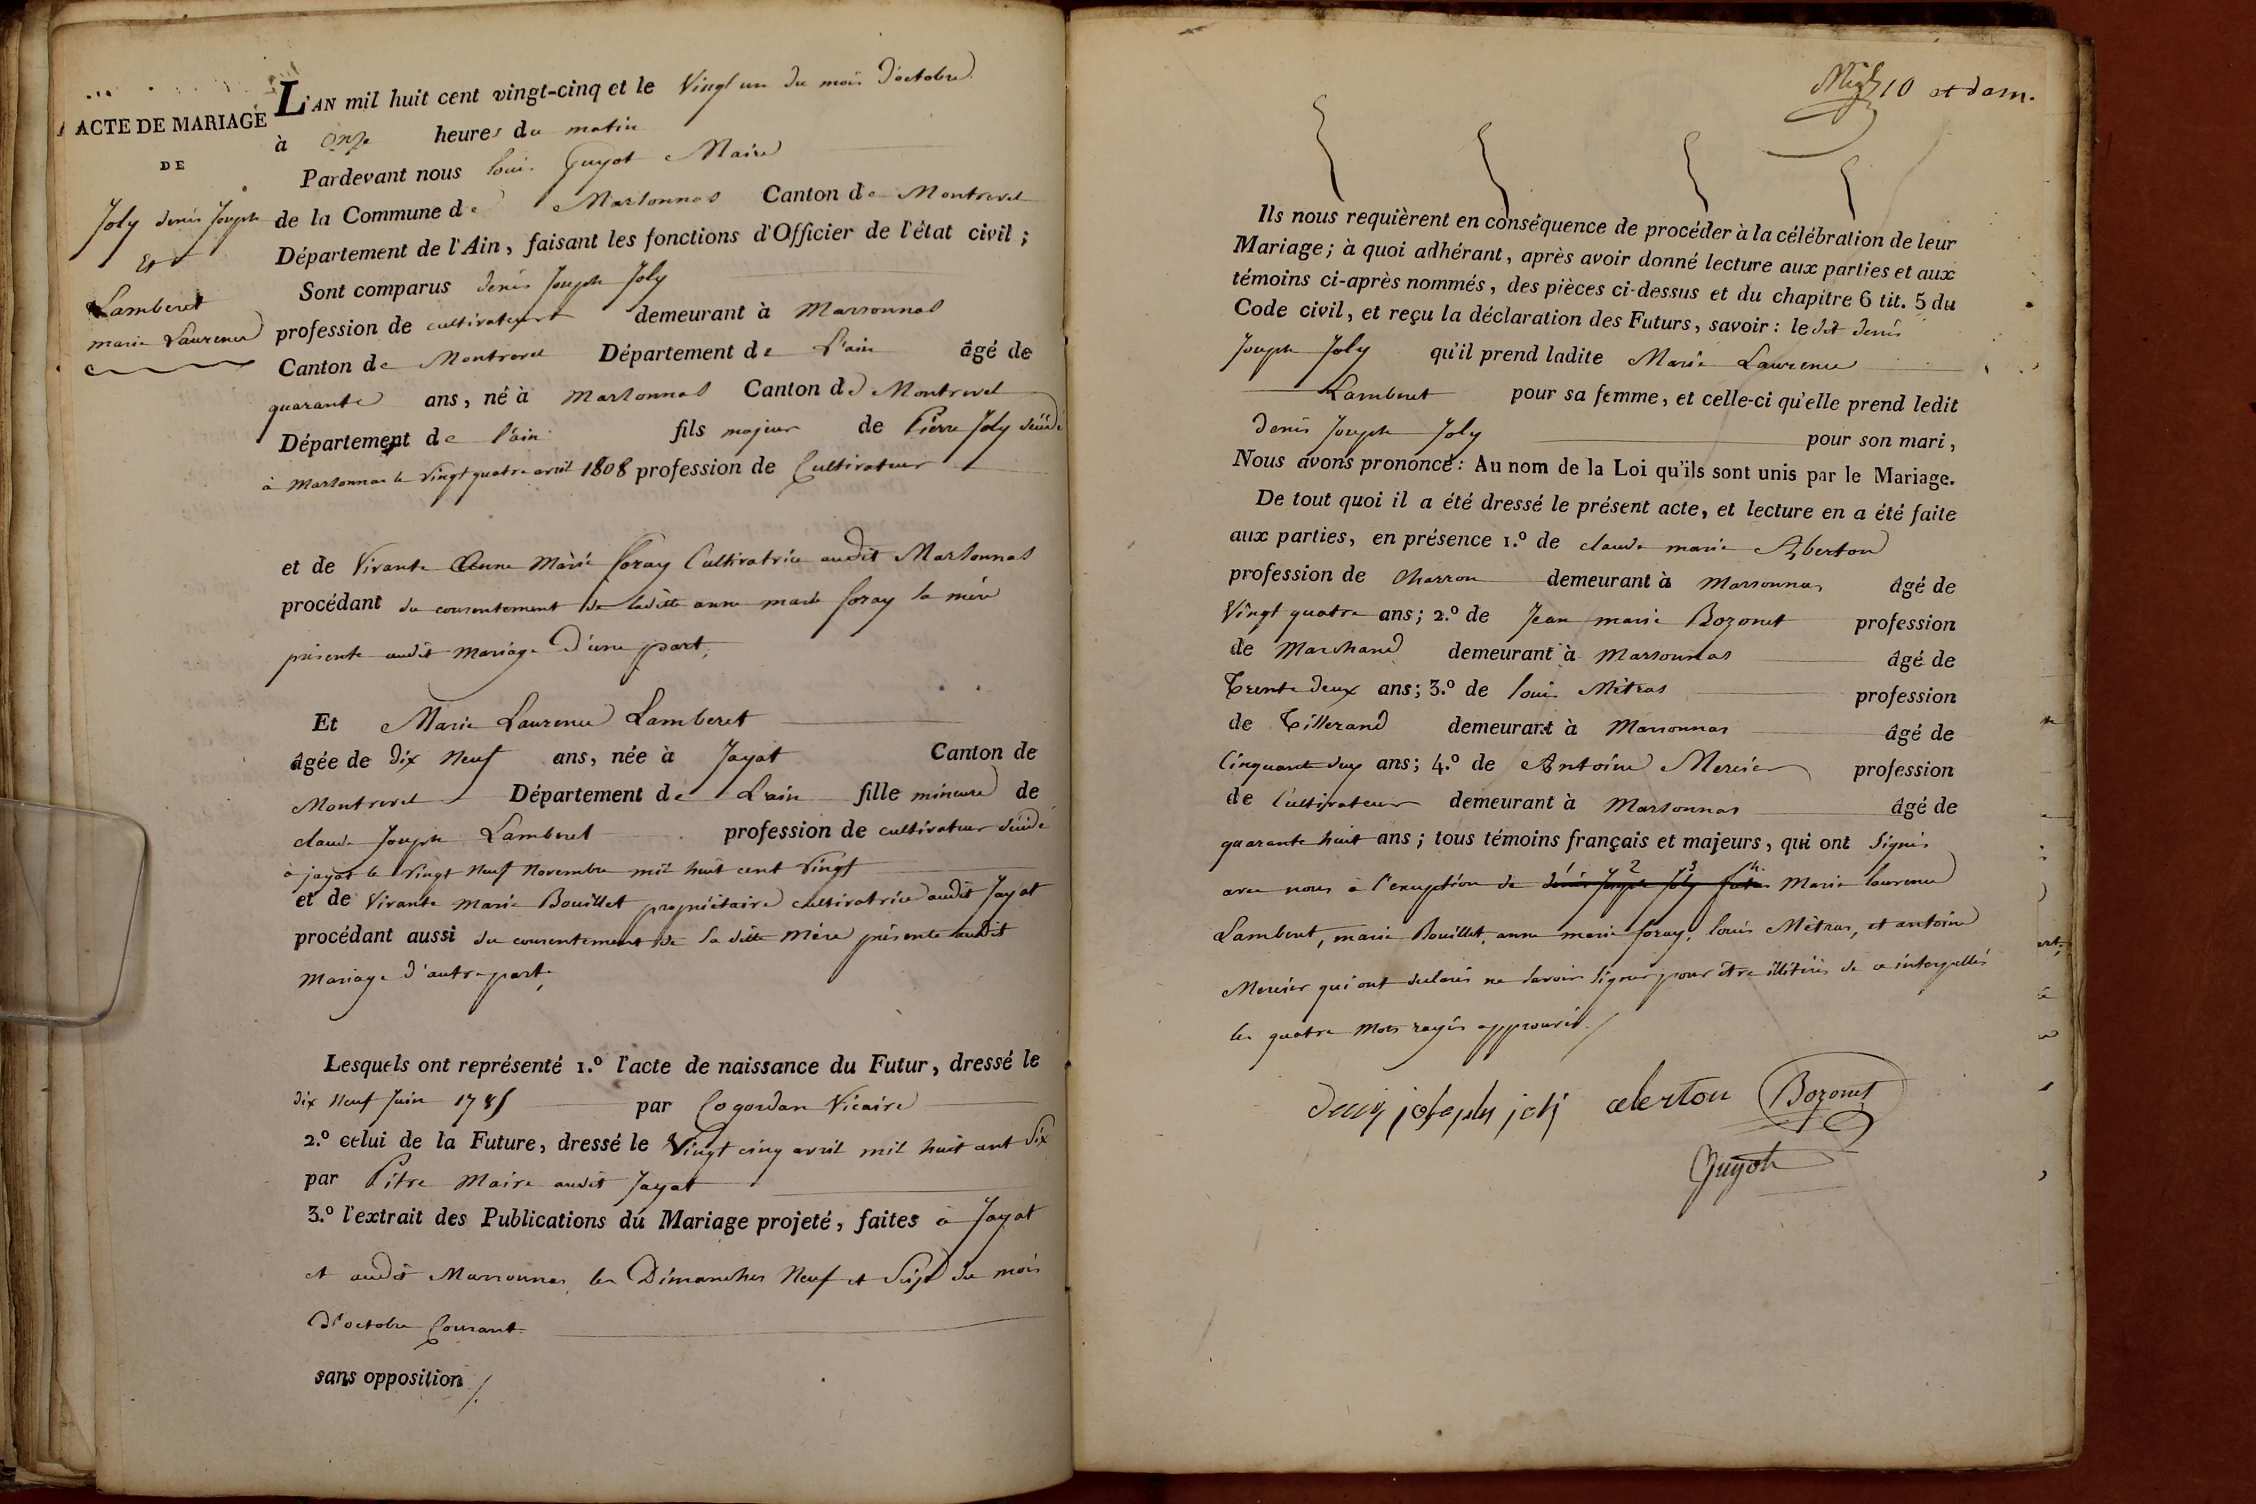 ACTE DE MARIAGE
DE
Joly denis Joseph
Et
Lamberet
marie Laurence
L'AN mil huit cent vingt-cinq et le Vingt un du mois d'octobre
à onze heures du matin
Pardevant nous louis Guyot Maire
de la Commune de Marsonnas Canton de Montrevel
Département de l'Ain, faisant les fonctions d'Officier de l'état civil ;
Sont comparus denis Joseph Joly
profession de cultivateur demeurant à Marsonnas
Canton de Montrevel Département de L'ain âgé de
quarante ans, né à Marsonnas Canton de Montrevel
Département de l'ain fils majeur de Pierre Joly décédé
à Marsonnas le vingt quatre avril 1808 profession de Cultivateur
et de Vivante Anne Marie foray Cultivatrice audit Marsonnas
procédant du consentement de ladite anne marie foray sa mère
présente audit mariage d'une part,
Et Marie Laurence Lamberet
âgée de dix Neuf ans, née à Jayat Canton de
Montrevel Département de L'ain fille mineure de
claude Joseph Lamberet profession de cultivateur décédé
à jayat le vingt Neuf Novembre mil huit cent vingt
et de Vivante marie Bouillet propriétaire cultivatrice audit Jayat
procédant aussi du consentement de sa dite Mère présente audit
Mariage d'autre part,
Lesquels ont représenté 1.º l'acte de naissance du Futur, dressé le
dix Neuf Juin 1785 par Cogordan Vicaire
2.º celui de la Future, dressé le Vingt cinq avril mil huit cent Six
par Pitre Maire audit Jayat
3.º l'extrait des Publications du Mariage projeté, faites à Jayat
et audit Marsonnas les Dimanches Neuf et Seize du mois
D'octobre Courant
sans opposition /.
10 et dern.
Ils nous requièrent en conséquence de procéder à la célébration de leur
Mariage ; à quoi adhérant, après avoir donné lecture aux parties et aux
témoins ci-après nommés, des pièces ci-dessus et du chapitre 6 tit. 5 du
Code civil, et reçu la déclaration des Futurs, savoir : le dit denis
Joseph Joly qu'il prend ladite Marie Laurence
Lamberet pour sa femme, et celle-ci qu'elle prend ledit
denis Joseph Joly pour son mari,
Nous avons prononcé : Au nom de la Loi qu'ils sont unis par le Mariage.
De tout quoi il a été dressé le présent acte, et lecture en a été faite
aux parties, en présence 1.º de claude marie Alberton
profession de Charron demeurant à Marsonnas âgé de
Vingt quatre ans ; 2.º de Jean marie Bozonet profession
de Marchand demeurant à Marsonnas âgé de
Trente deux ans ; 3.º de louis Mètras profession
de Tisserand demeurant à Marsonnas âgé de
Cinquante deux ans ; 4.º de Antoine Mercier profession
de Cultivateur demeurant à Marsonnas âgé de
quarante huit ans ; tous témoins français et majeurs, qui ont Signés
avec nous à l'exception de denis Joseph Joly futur Marie laurence
Lamberet, marie Bouillet, anne marie foray, louis Mètras, et antoine
Mercier qui ont déclarés ne savoir Signer pour être illitérés de ce interpellés
les quatre Mots rayés approuvés /
denis joseph joli alerton Bozonet
Guyot